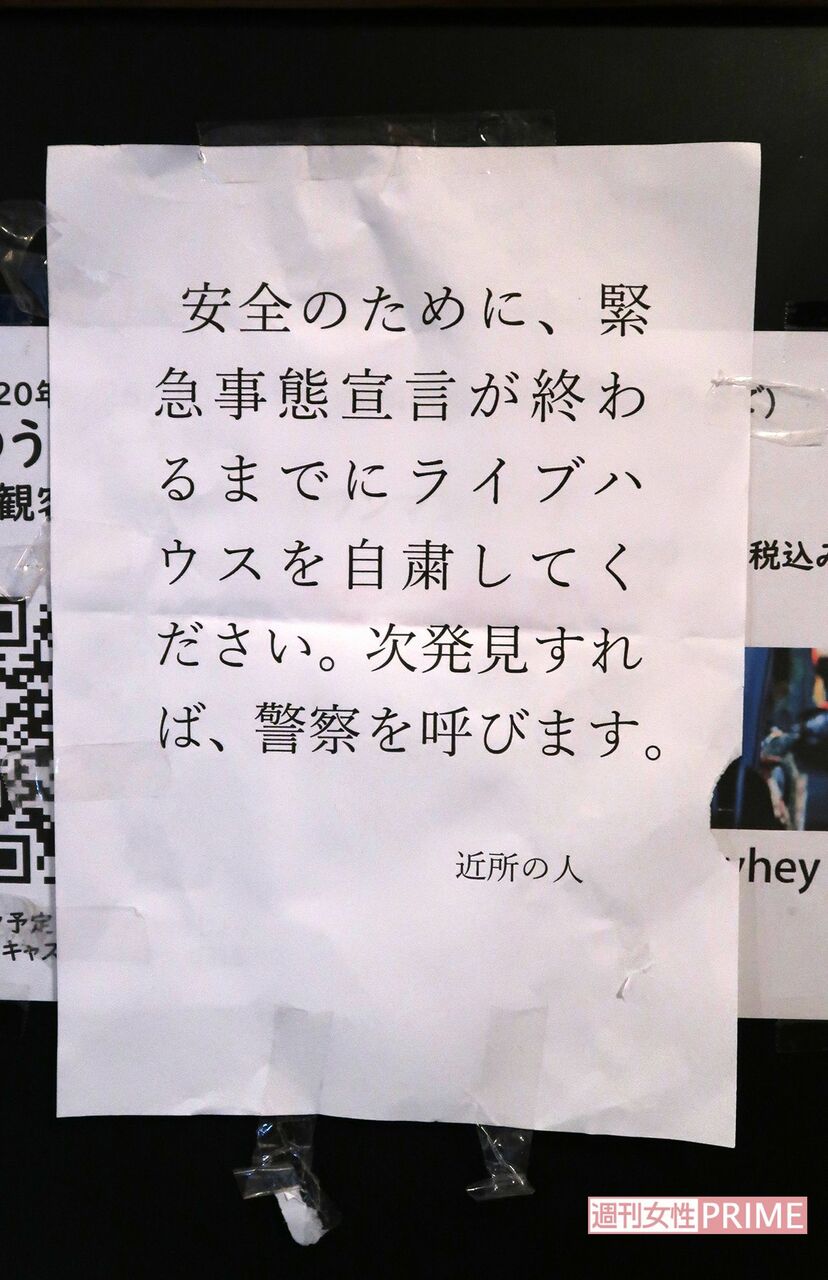 安全のために、緊
急事態宣言が終わ
るまでにライブハ
ウスを自粛してく
ださい。次発見すれ
ば、警察を呼びます。
近所の人
20年
う
観客
予定
キャス
ど)
税込み
hey
週刊女性PRIME